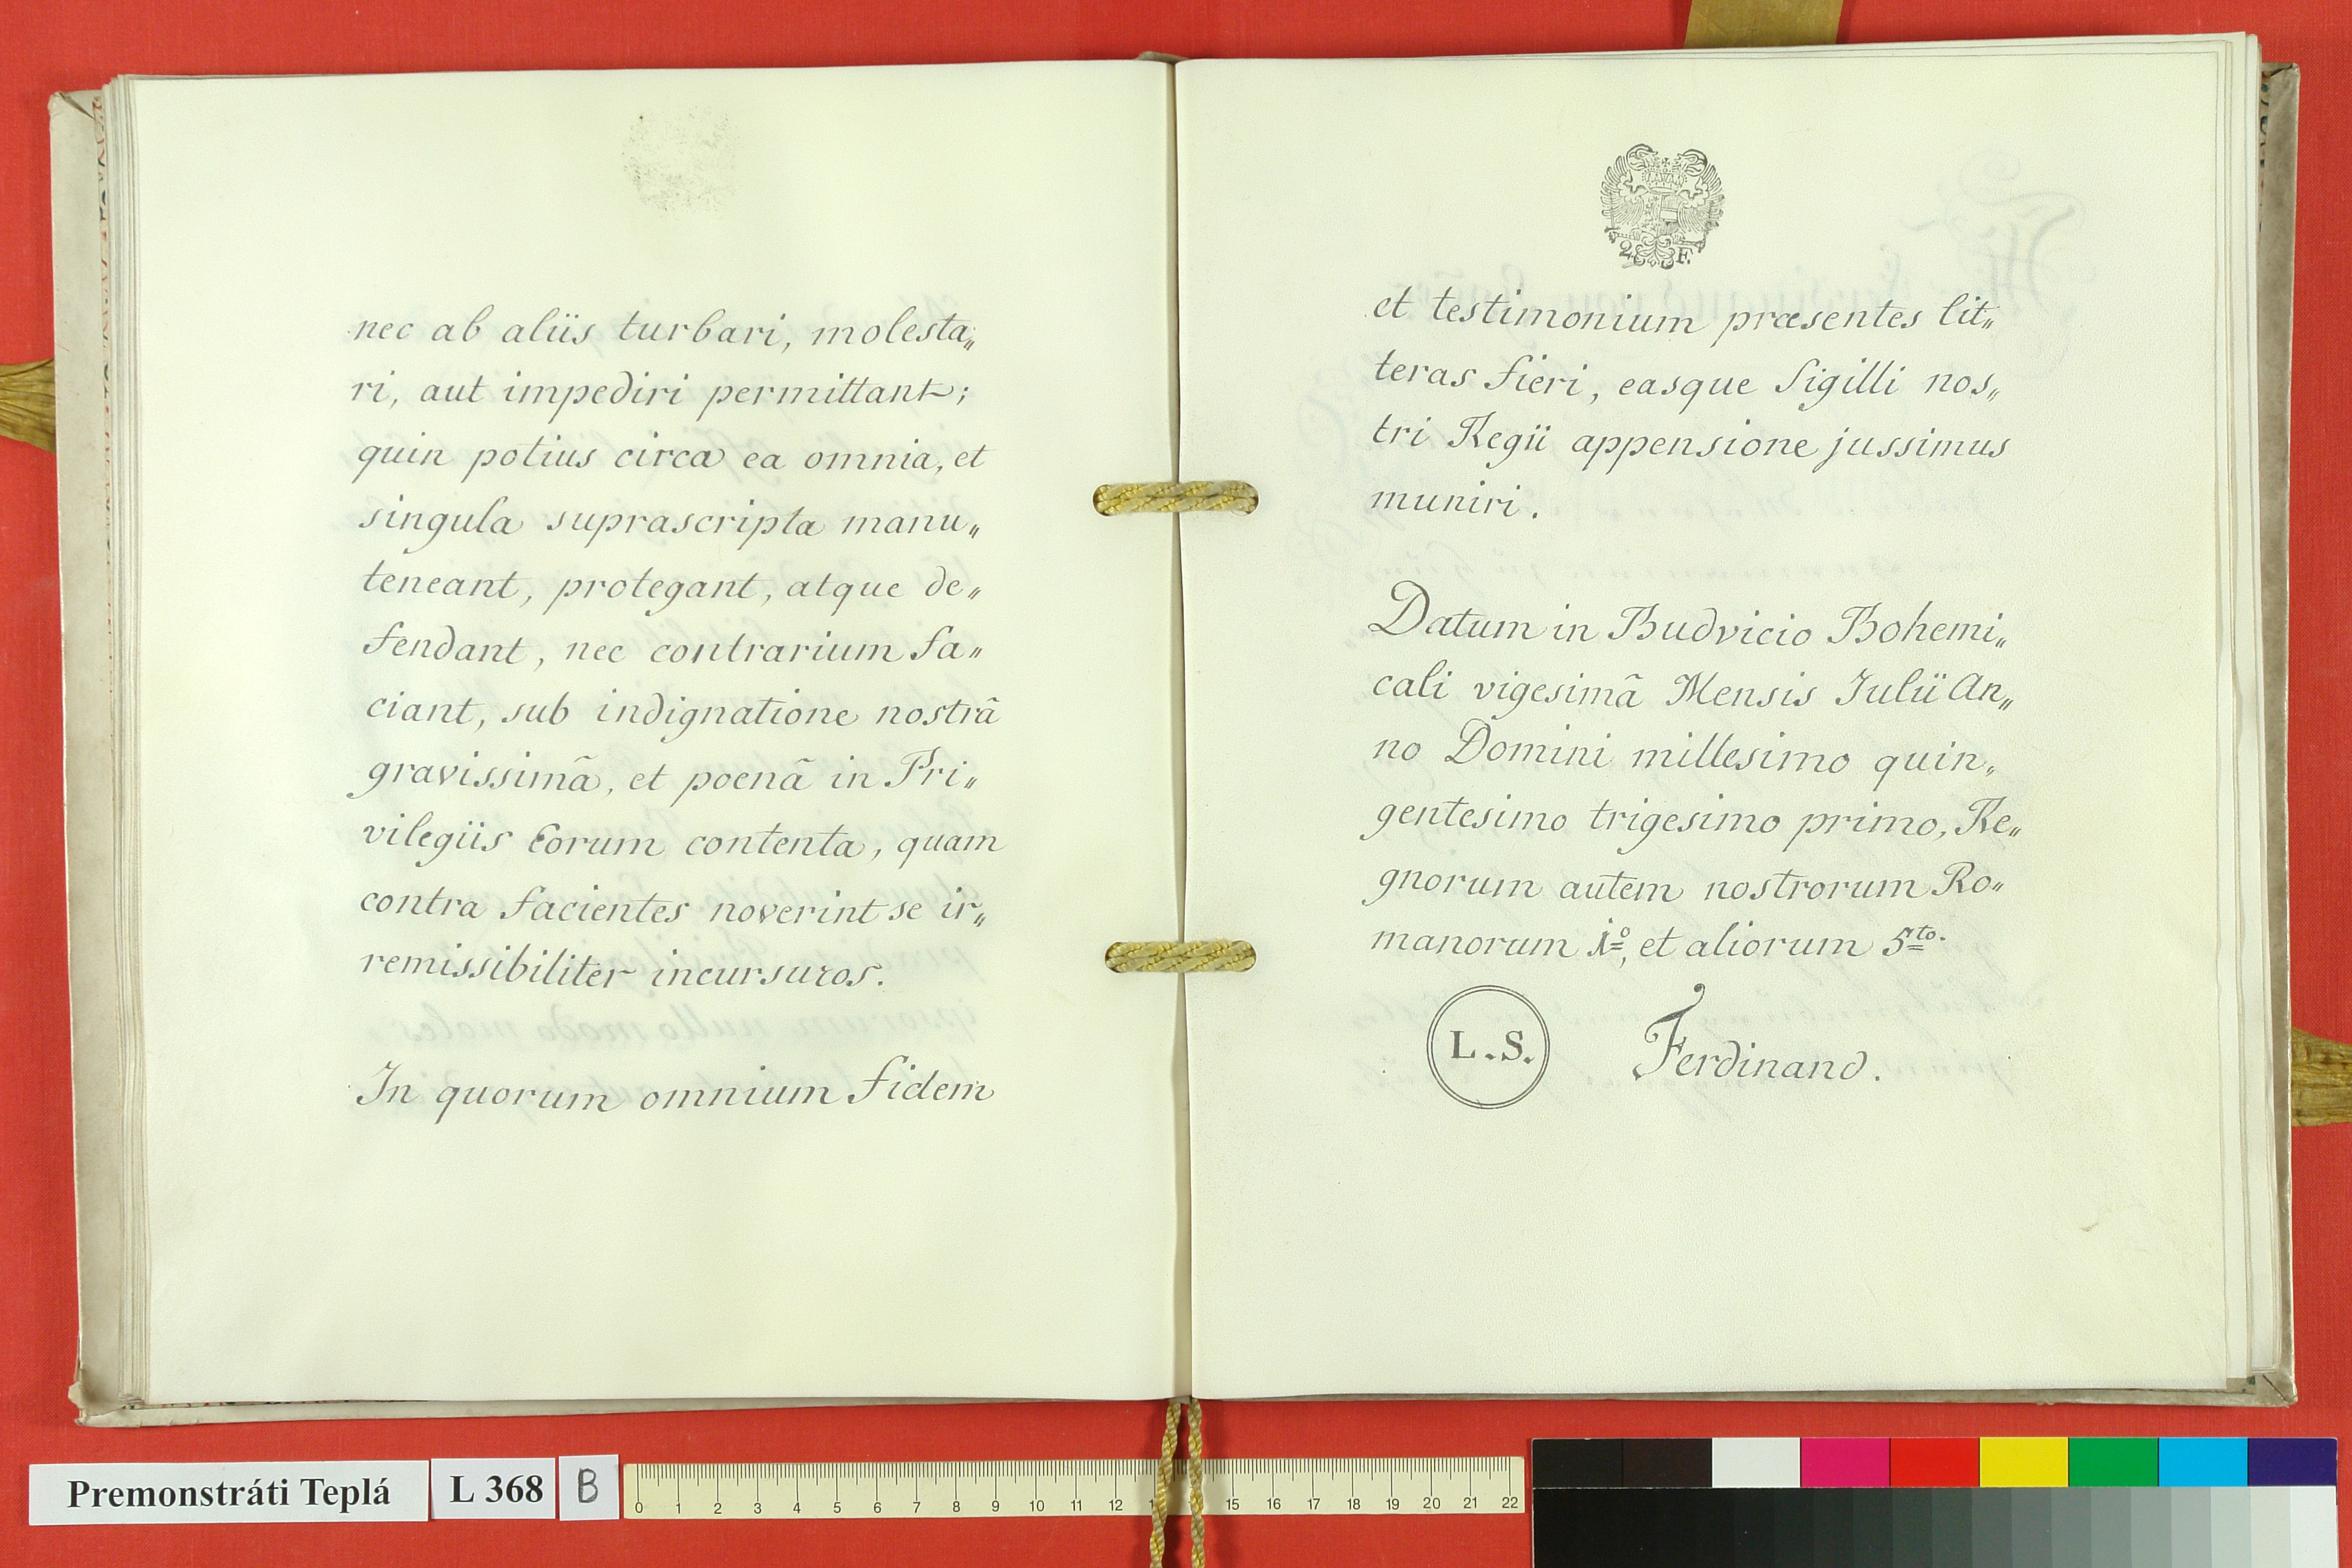 nec ab aliis turbari, molesta„
ri, aut impediri permittant;
quin potius circa ea omnia, et
singula suprascripta manu„
teneant, protegant, atque de„
fendant, nec contrarium fa„
ciant, sub indignatione nostrâ
gravissimâ, et poenâ in Pri„
vilegiis Eorum contenta, quam
contra facientes noverint se ir„
remissibiliter incursuros.
In quorum omnium fidem
2 F.
et testimonium præsentes lit„
teras fieri, easque Sigilli nos„
tri Regii appensione jussimus
muniri.
Datum in Budvicio Bohemi„
cali vigesimâ Mensis Julii An„
no Domini millesimo quin„
gentesimo trigesimo primo, Re„
gnorum autem nostrorum Ro„
manorum 1º, et aliorum 5to.
L.S. Ferdinand.
Premonstráti Teplá L 368 B
0 1 2 3 4 5 6 7 8 9 10 11 12 15 16 17 18 19 20 21 22